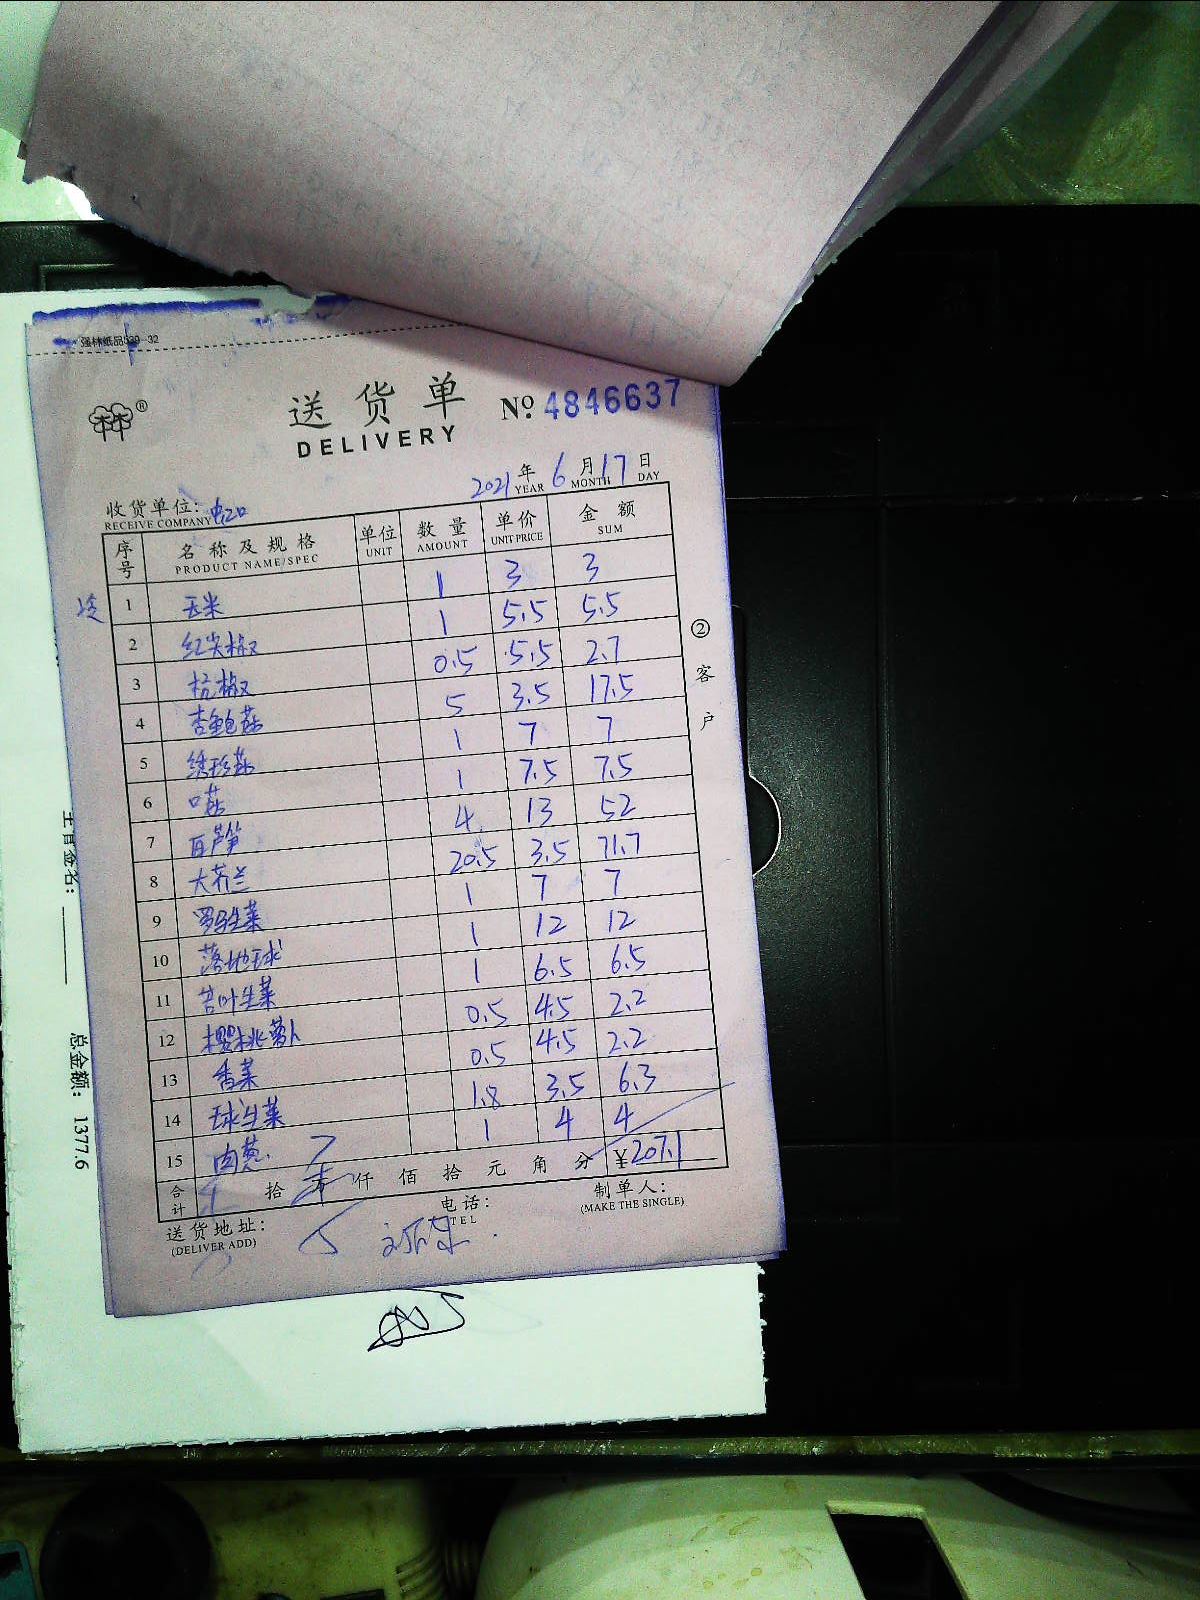 强林纸品939-32
送货单 № 4846637
DELIVERY
2021年 6月 17日
YEAR MONTH DAY
收货单位:
RECEIVE COMPANY
序号 名称及规格 单位 数量 单价 金额
PRODUCT NAME/SPEC UNIT AMOUNT UNIT PRICE SUM
1 玉米 1 3 3
2 红尖椒 1 5.5 5.5
3 杭椒 0.5 5.5 2.7
4 杏鲍菇 5 3.5 17.5
5 绣珍菇 1 7 7
6 口菇 1 7.5 7.5
7 百芦笋 4 13 52
8 大芥兰 20.5 3.5 71.7
9 罗马生菜 1 7 7
10 落地球 1 12 12
11 苦叶生菜 1 6.5 6.5
12 樱桃萝卜 0.5 4.5 2.2
13 香菜 0.5 4.5 2.2
14 球生菜 1.8 3.5 6.3
15 肉葱 1 4 4
合计 拾 万 仟 佰 拾 元 角 分 ¥207.1
送货地址: 电话: 制单人:
(DELIVER ADD) TEL (MAKE THE SINGLE)
②客户
总金额: 1377.6